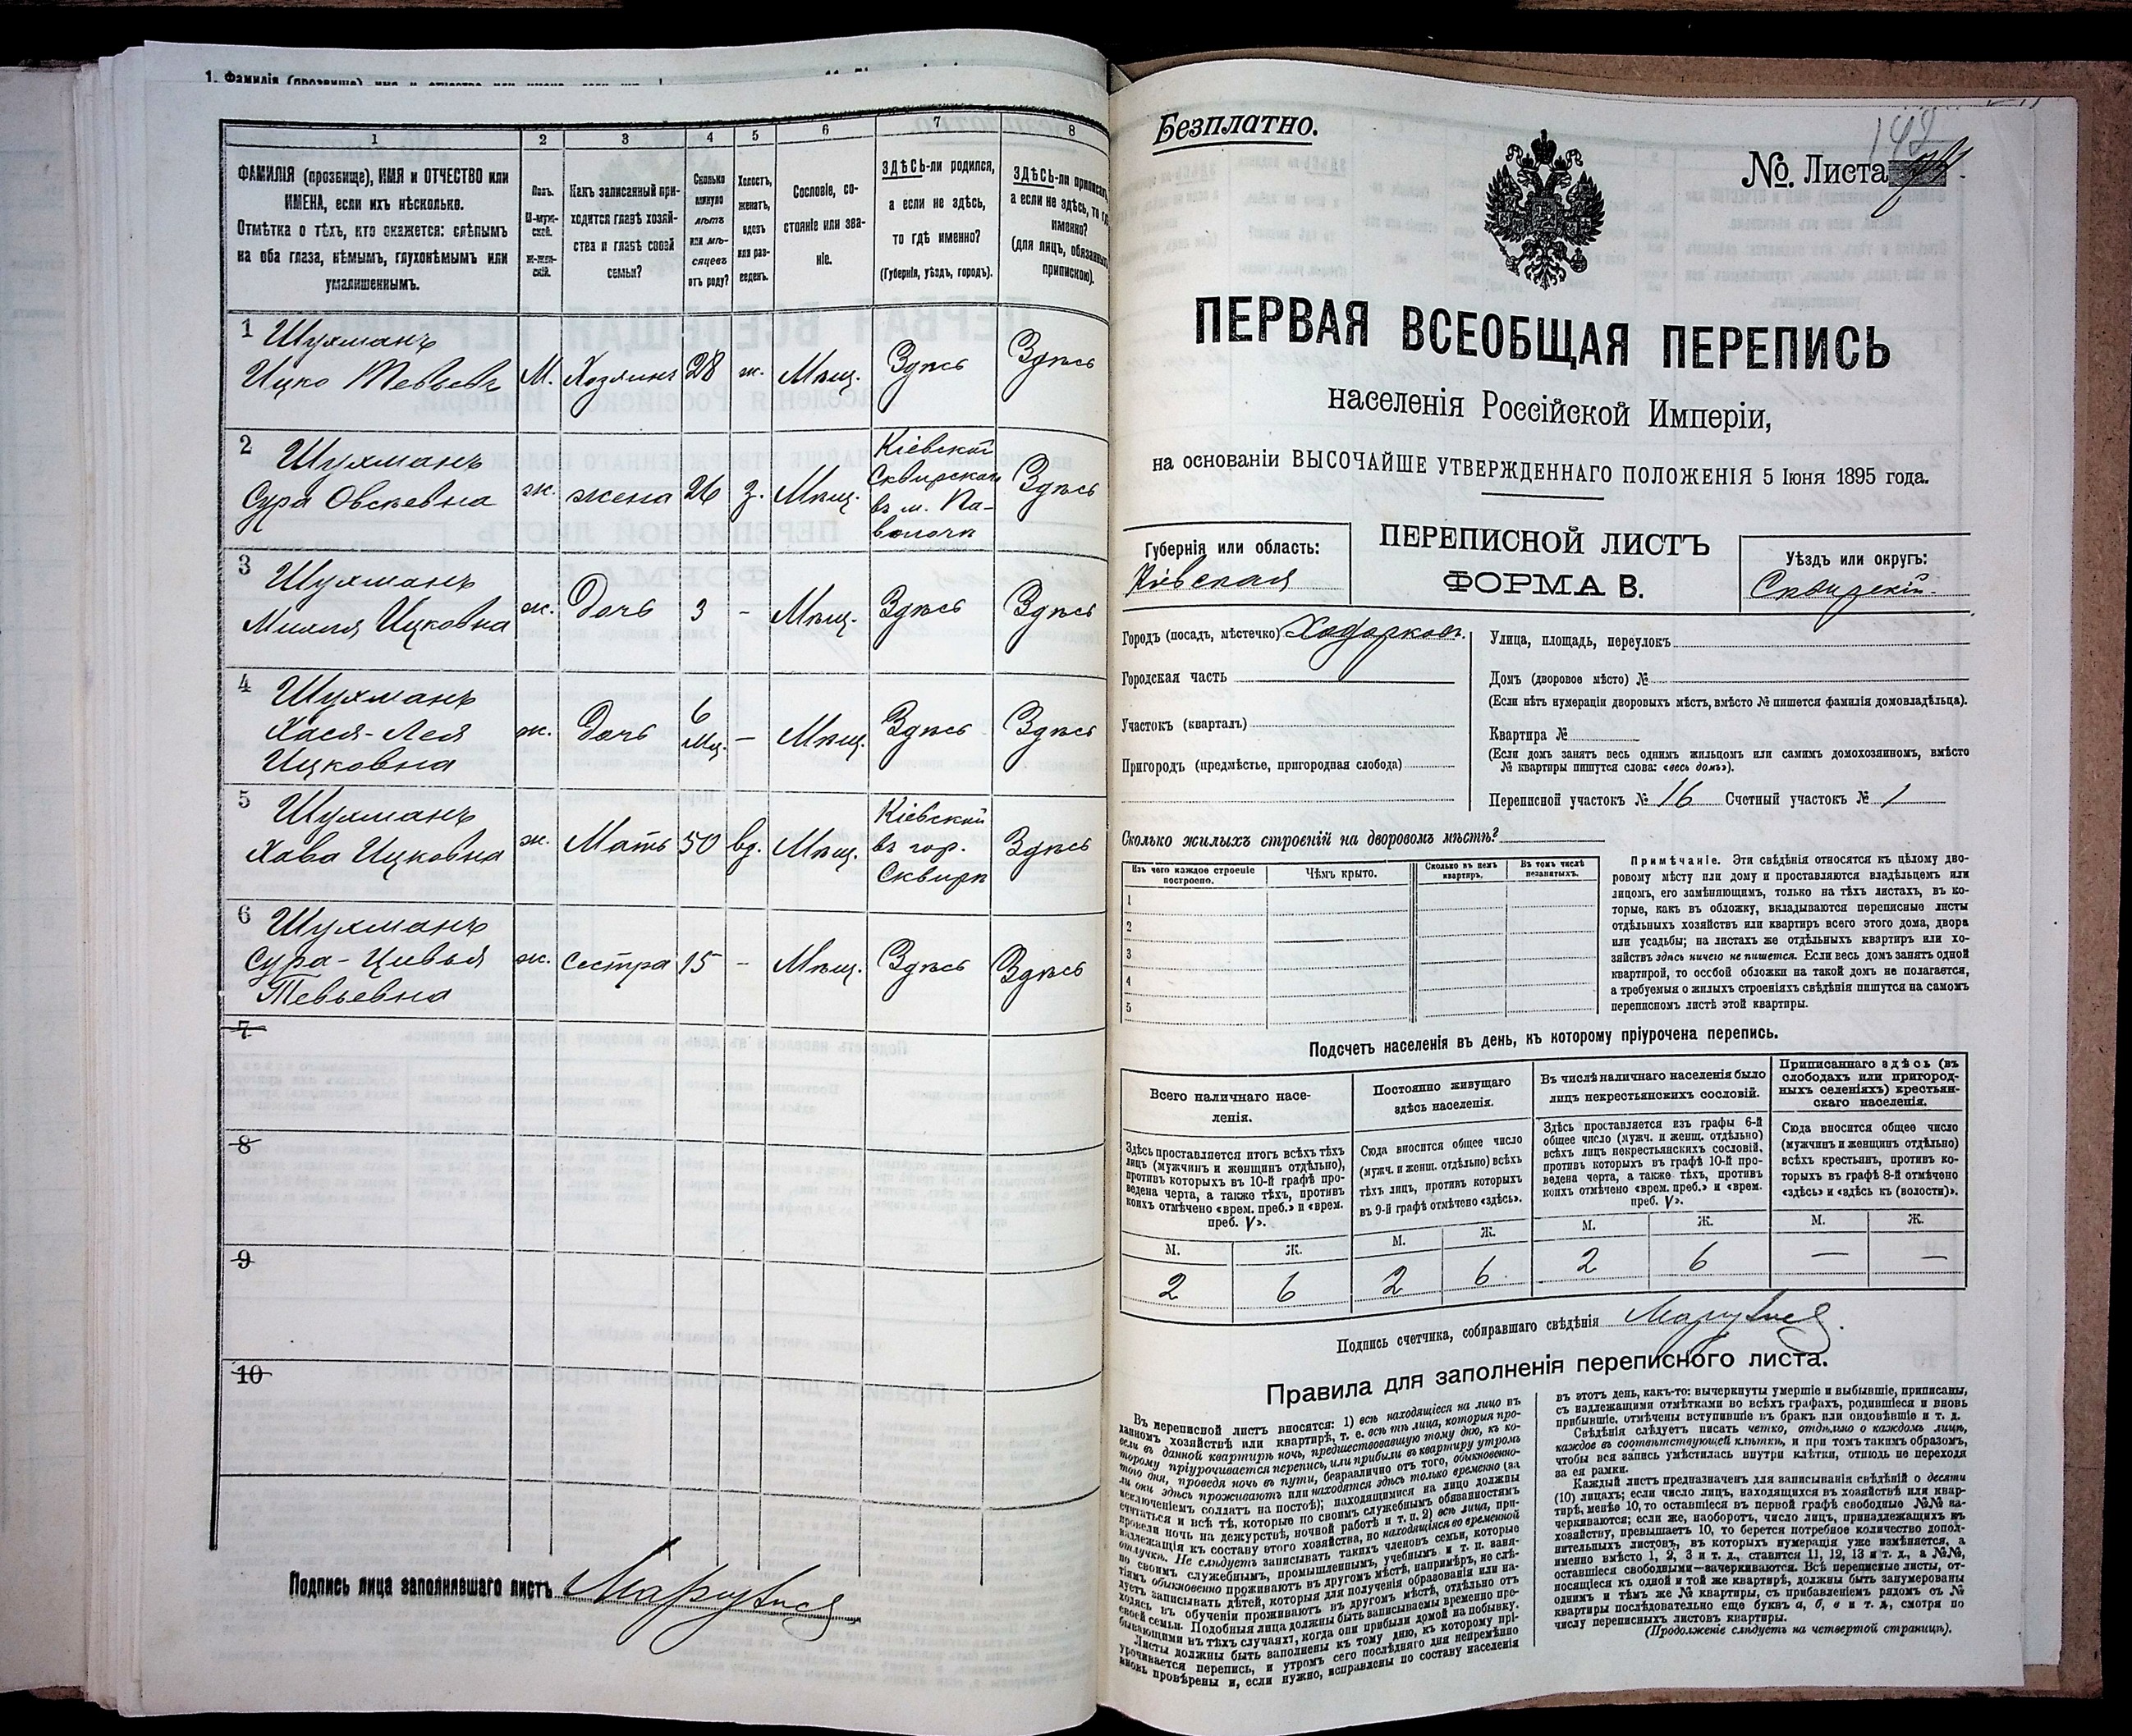 1
2
3
4
5
6
7
8
ФАМИЛІЯ (прозвище), ИМЯ и ОТЧЕСТВО или
ИМЕНА, если ихъ нѣсколько.
Отмѣтка о тѣхъ, кто окажется: слѣпымъ
на оба глаза, нѣмымъ, глухонѣмымъ или
умалишеннымъ.
Полъ.
М-муж-
ской.
Ж-жен-
скій.
Какъ записанный при-
ходится главѣ хозяй-
ства и главѣ своей
семьи?
Сколько
минуло
лѣтъ
или мѣ-
сяцевъ
отъ роду?
Холостъ,
женатъ,
вдовъ
или раз-
веденъ.
Сословіе, со-
стояніе или зва-
ніе.
ЗДѢСЬ-ли родился,
а если не здѣсь,
то гдѣ именно?
(Губернія, уѣздъ, городъ).
ЗДѢСЬ-ли приписанъ,
а если не здѣсь, то гдѣ
именно?
(для лицъ, обязанныхъ
припискою).
1 Шухманъ
Ицко Тевьевъ
М.
Хозяинъ
28
ж.
Мѣщ.
Здѣсь
Здѣсь
2 Шухманъ
Сура Овсѣевна
ж.
жена
26
з.
Мѣщ.
Кіевской
Сквирскаго
въ м. Па-
волочи
Здѣсь
3 Шухманъ
Ицковна
ж.
Дочь
3
-
Мѣщ.
Здѣсь
Здѣсь
4 Шухманъ
Хася-Лея
Ицковна
ж.
Дочь
6
мц.
-
Мѣщ.
Здѣсь
Здѣсь
5 Шухманъ
Хава Ицковна
ж.
Мать
50
вд.
Мѣщ.
Кіевской
въ гор.
Сквирѣ
Здѣсь
6 Шухманъ
Сура-Цивья
Тевьевна
ж.
Сестра
15
-
Мѣщ.
Здѣсь
Здѣсь
7
8
9
10
Подпись лица заполнявшаго листъ
Безплатно.
142
№. Листа
ПЕРВАЯ ВСЕОБЩАЯ ПЕРЕПИСЬ
населенія Россійской Имперіи,
на основаніи ВЫСОЧАЙШЕ УТВЕРЖДЕННАГО ПОЛОЖЕНІЯ 5 Іюня 1895 года.
Губернія или область:
Кіевская
ПЕРЕПИСНОЙ ЛИСТЪ
ФОРМА В.
Уѣздъ или округъ:
Сквирскій.
Городъ (посадъ, мѣстечко) Ходорковъ.
Городская часть
Участокъ (кварталъ)
Пригородъ (предмѣстье, пригородная слобода)
Улица, площадь, переулокъ
Домъ (дворовое мѣсто) №
(Если нѣтъ нумераціи дворовыхъ мѣстъ, вмѣсто № пишется фамилія домовладѣльца).
Квартира №
(Если домъ занятъ весь однимъ жильцомъ или самимъ домохозяиномъ, вмѣсто
№ квартиры пишутся слова: «весь домъ»).
Переписной участокъ № 16 Счетный участокъ № 1
Сколько жилыхъ строеній на дворовомъ мѣстѣ?
Изъ чего каждое строеніе
построено.
Чѣмъ крыто.
Сколько въ немъ
квартиръ.
Въ томъ числѣ
незанятыхъ.
1
2
3
4
5
Примѣчаніе. Эти свѣдѣнія относятся къ цѣлому дво-
ровому мѣсту или дому и проставляются владѣльцемъ или
лицомъ, его замѣняющимъ, только на тѣхъ листахъ, въ ко-
торые, какъ въ обложку, вкладываются переписные листы
отдѣльныхъ хозяйствъ или квартиръ всего этого дома, двора
или усадьбы; на листахъ же отдѣльныхъ квартиръ или хо-
зяйствъ здѣсь ничего не пишется. Если весь домъ занятъ одной
квартирой, то особой обложки на такой домъ не полагается,
а требуемыя о жилыхъ строеніяхъ свѣдѣнія пишутся на самомъ
переписномъ листѣ этой квартиры.
Подсчетъ населенія въ день, къ которому пріурочена перепись.
Всего наличнаго насе-
ленія.
Постоянно живущаго
здѣсь населенія.
Въ числѣ наличнаго населенія было
лицъ некрестьянскихъ сословій.
Приписаннаго здѣсь (въ
слободахъ или пригород-
ныхъ селеніяхъ) крестьян-
скаго населенія.
Здѣсь проставляется итогъ всѣхъ тѣхъ
лицъ (мужчинъ и женщинъ отдѣльно),
противъ которыхъ въ 10-й графѣ про-
ведена черта, а также тѣхъ, противъ
коихъ отмѣчено «врем. преб.» и «врем.
преб. V».
Сюда вносится общее число
(мужч. и женщ. отдѣльно) всѣхъ
тѣхъ лицъ, противъ которыхъ
въ 9-й графѣ отмѣчено «здѣсь».
Здѣсь проставляется изъ графы 6-й
общее число (мужч. и женщ. отдѣльно)
всѣхъ лицъ некрестьянскихъ сословій,
противъ которыхъ въ графѣ 10-й про-
ведена черта, а также тѣхъ, противъ
коихъ отмѣчено «врем. преб.» и «врем.
преб. V».
Сюда вносится общее число
(мужчинъ и женщинъ отдѣльно)
всѣхъ крестьянъ, противъ ко-
торыхъ въ графѣ 8-й отмѣчено
«здѣсь» и «здѣсь къ (волости)».
М. Ж. М. Ж. М. Ж. М. Ж.
2 6 2 6 2 6 — —
Подпись счетчика, собиравшаго свѣдѣнія
Правила для заполненія переписного листа.
Въ переписной листъ вносятся: 1) всѣ находящіеся на лицо въ
данномъ хозяйствѣ или квартирѣ, т. е. всѣ тѣ лица, которыя про-
вели въ данной квартирѣ ночь, предшествовавшую тому дню, къ ко-
торому пріурочивается перепись, или прибыли въ квартиру утромъ
того дня, проведя ночь въ пути, безразлично отъ того, обыкновенно-
ли они здѣсь проживаютъ или находятся здѣсь только временно (за
исключеніемъ солдатъ на постоѣ); находящимися на лицо должны
считаться и всѣ тѣ, которые по своимъ служебнымъ обязанностямъ
провели ночь на дежурствѣ, ночной работѣ и т. п. 2) всѣ лица, при-
надлежащія къ составу этого хозяйства, но находящіяся во временной
отлучкѣ. Не слѣдуетъ записывать такихъ членовъ семьи, которые
по своимъ служебнымъ, промышленнымъ, учебнымъ и т. п. заня-
тіямъ обыкновенно проживаютъ въ другомъ мѣстѣ, напримѣръ, не слѣ-
дуетъ записывать дѣтей, которыя для полученія образованія или на-
ходясь въ обученіи проживаютъ въ другомъ мѣстѣ, отдѣльно отъ
своей семьи. Подобныя лица должны быть записываемы временно пре-
бывающими въ тѣхъ случаяхъ, когда они прибыли домой на побывку.
Листы должны быть заполнены къ тому дню, къ которому прі-
урочивается перепись, и утромъ сего послѣдняго дня непремѣнно
вновь провѣрены и, если нужно, исправлены по составу населенія
въ этотъ день, какъ-то: вычеркнуты умершіе и выбывшіе, приписаны,
съ надлежащими отмѣтками во всѣхъ графахъ, родившіеся и вновь
прибывшіе, отмѣчены вступившіе въ бракъ или овдовѣвшіе и т. д.
Свѣдѣнія слѣдуетъ писать четко, отдѣльно о каждомъ лицѣ,
каждое въ соотвѣтствующей клѣткѣ, и при томъ такимъ образомъ,
чтобы вся запись умѣстилась внутри клѣтки, отнюдь не переходя
за ея рамки.
Каждый листъ предназначенъ для записыванія свѣдѣній о десяти
(10) лицахъ; если число лицъ, находящихся въ хозяйствѣ или квар-
тирѣ, менѣе 10, то оставшіеся въ первой графѣ свободные №№ за-
черкиваются; если же, наоборотъ, число лицъ, принадлежащихъ къ
хозяйству, превышаетъ 10, то берется потребное количество допол-
нительныхъ листовъ, въ которыхъ нумерація уже измѣняется, а
именно вмѣсто 1, 2, 3 и т. д., ставится 11, 12, 13 и т. д., а №№,
оставшіеся свободными—зачеркиваются. Всѣ переписные листы, от-
носящіеся къ одной и той же квартирѣ, должны быть занумерованы
однимъ и тѣмъ же № квартиры, съ прибавленіемъ рядомъ съ №
квартиры послѣдовательно еще буквъ а, б, в и т. д., смотря по
числу переписныхъ листовъ квартиры.
(Продолженіе слѣдуетъ на четвертой страницѣ).